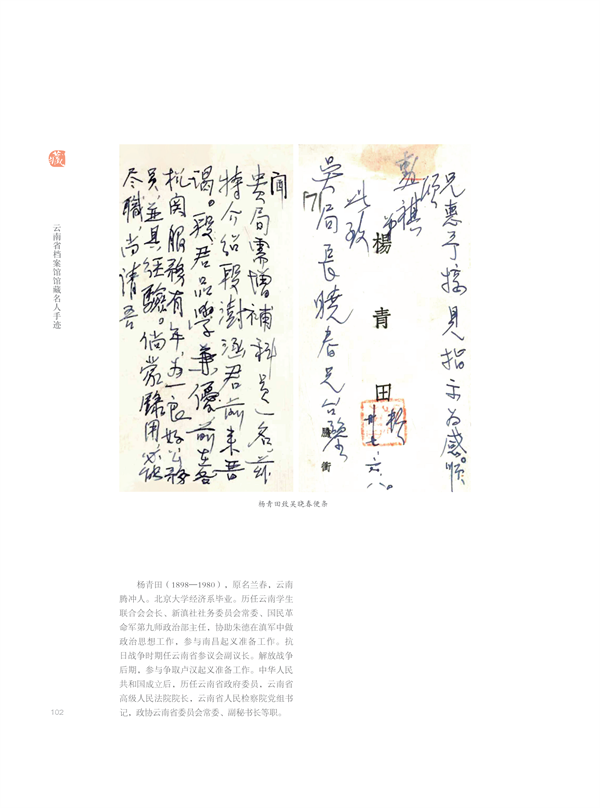 藏
云南省档案馆馆藏名人手迹
闻
贵局需增补科员一名兹
特介绍段澍涵君前来晋
谒。段君品学兼优前在各
机关服务有年为一良好公务
员并具经验。倘蒙录用必能
尽职尚请吾
兄惠予接见指示为感。顺
颂
勋祺
弟
楊青田
腾衝
卅七、六、八。
此致
吴局长晓春兄台鉴
杨青田致吴晓春便条
杨青田（1898—1980），原名兰春，云南
腾冲人。北京大学经济系毕业。历任云南学生
联合会会长、新滇社社务委员会常委、国民革
命军第九师政治部主任，协助朱德在滇军中做
政治思想工作，参与南昌起义准备工作。抗
日战争时期任云南省参议会副议长。解放战争
后期，参与争取卢汉起义准备工作。中华人民
共和国成立后，历任云南省政府委员，云南省
高级人民法院院长，云南省人民检察院党组书
记，政协云南省委员会常委、副秘书长等职。
102